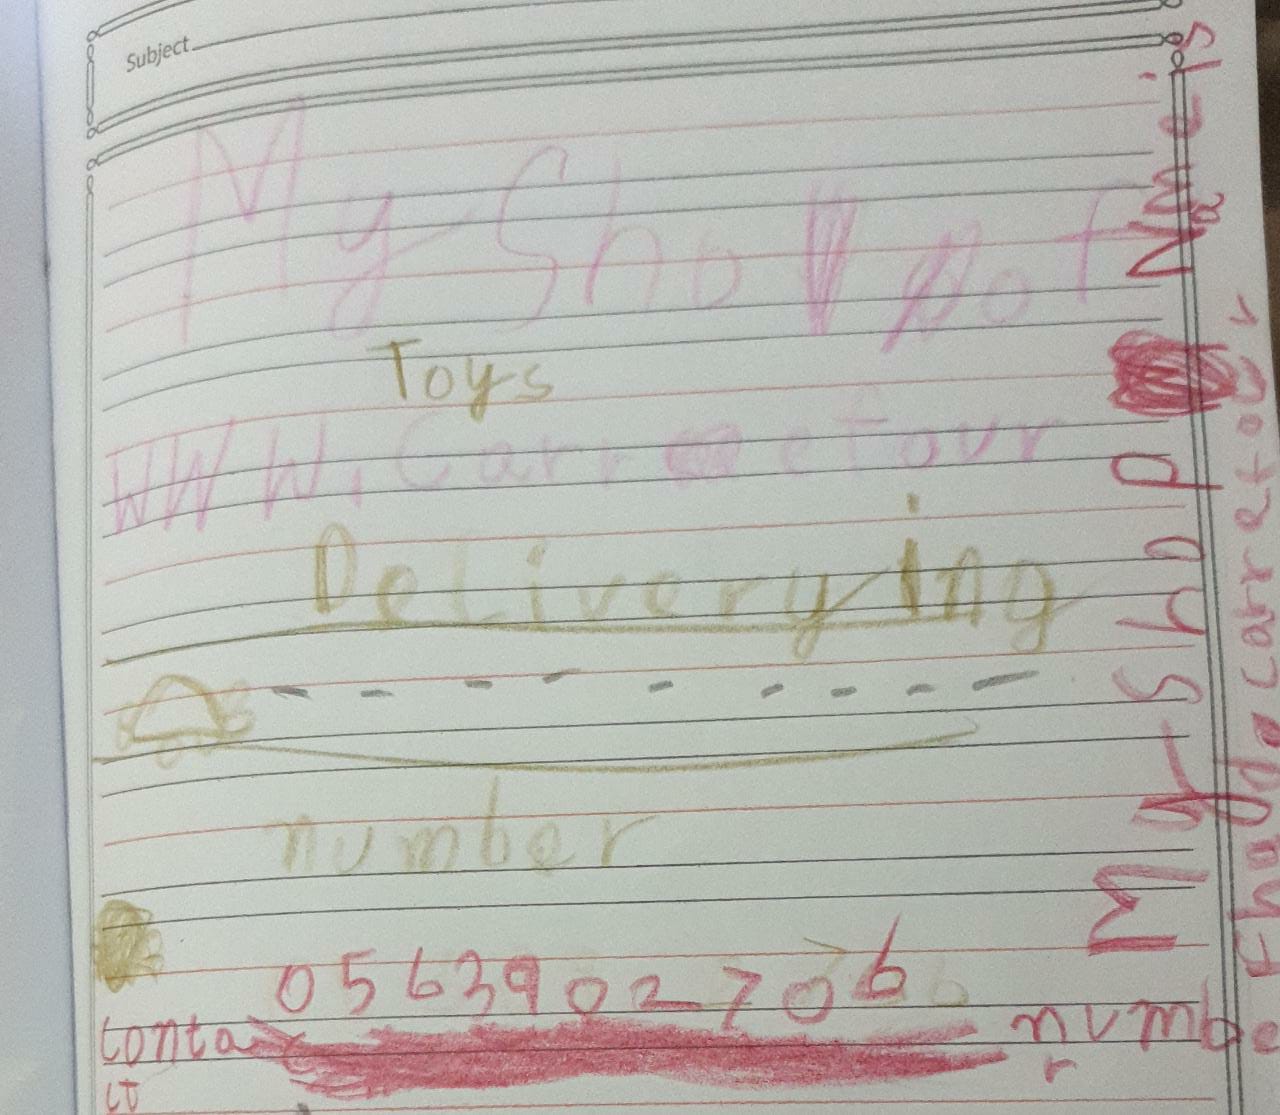 Subject
My Shop of
Toys
WWW.Carrefour
Deliverying
number
0563902706
contact number
My Shop Name is